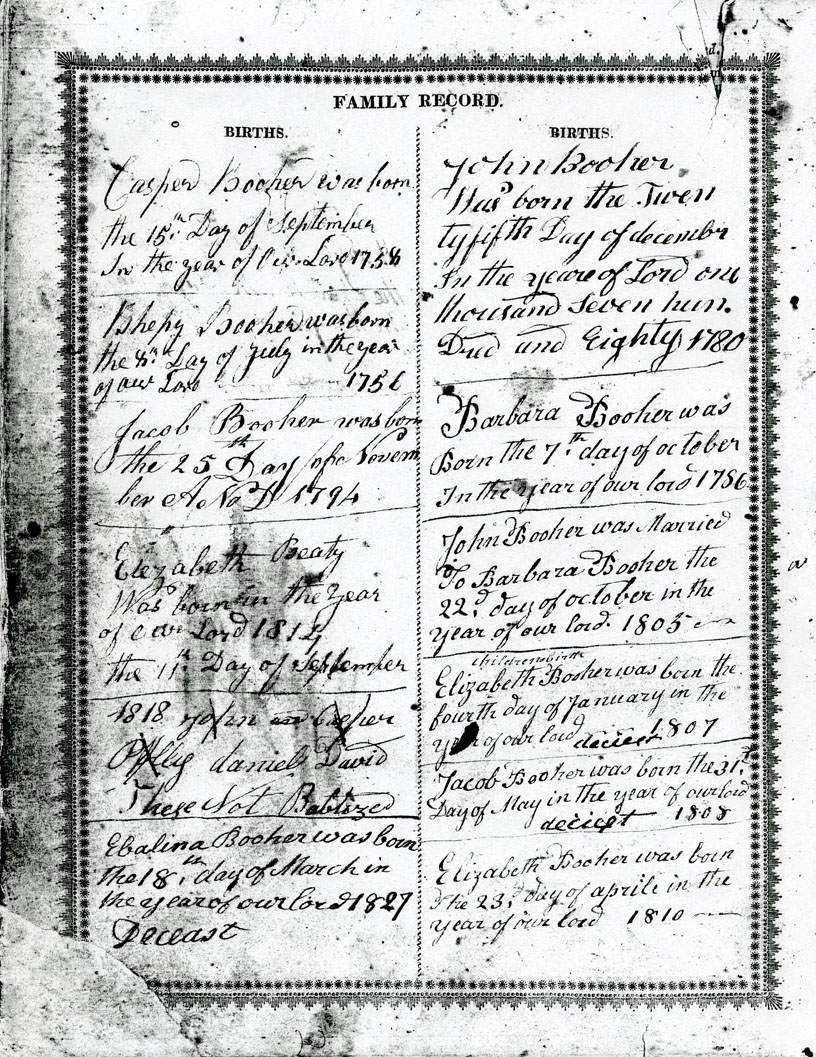 FAMILY RECORD.
BIRTHS.
Casper Booher was born
the 15th Day of September
In the year of Our Lord 1758
Bhepy Booher was born
the 8th Day of July in the year
of our Lord 1756
Jacob Booher was born
the 25th Day of Novem
ber A No D 1794
Elezabeth Beaty
Was born in the Year
of our Lord 1812
the 11th Day of September
1818 John Casper
Polly daniel David
These Not Babtized
Ebalina Booher was born
the 18th day of March in
the year of our lord 1827
Deceast
BIRTHS.
John Booher
Was born the Twen
tyfifth Day of december
In the yeare of Lord one
thousand Seven hun.
Dred and Eighty 1780
Barbara Booher was
Born the 7th day of october
In the year of our lord 1786
John Booher was Married
To Barbara Booher the
22d day of october in the
year of our lord. 1805
childrens birth
Elizabeth Booher was born the
fourth day of January in the
year of our lord deciest 1807
Jacob Booher was born the 31st
Day of May in the year of our lord
deciest 1808
Elizabeth Booher was born
the 23d day of aprile in the
year of our lord 1810